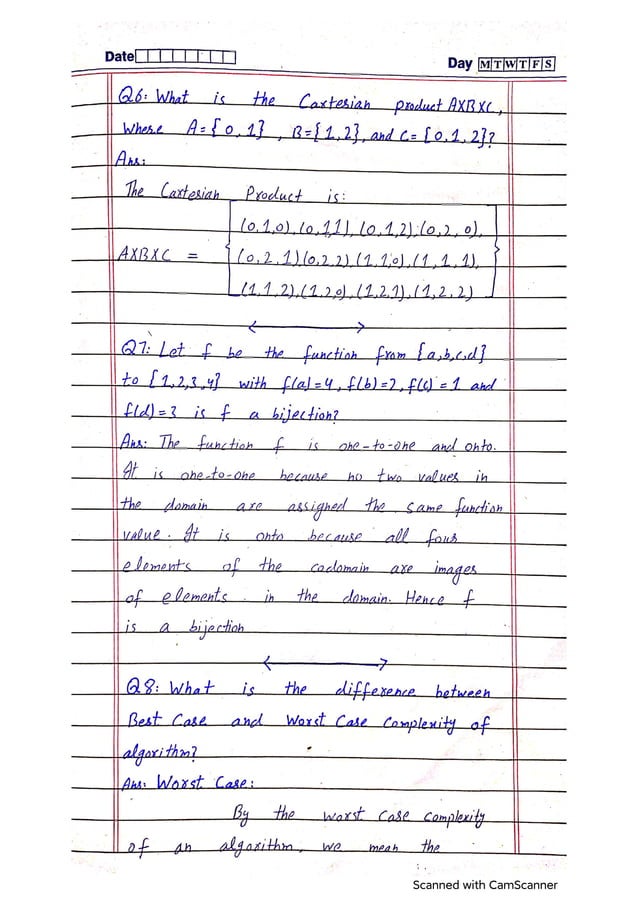 Date
Day M T W T F S
Q6: What is the Cartesian product AXBXC,
Where A={0,1}, B={1,2}, and C= {0,1,2}?
Ans:
The Cartesian Product is:
(0,1,0),(0,1,1),(0,1,2),(0,2,0),
AXBXC = (0,2,1)(0,2,2),(1,1,0),(1,1,1),
(1,1,2),(1,2,0),(1,2,1),(1,2,2)
Q7: Let f be the function from {a,b,c,d}
to {1,2,3,4} with f(a)=4, f(b)=2, f(c)=1 and
f(d)=3 is f a bijection?
Ans: The function f is one-to-one and onto.
It is one-to-one because no two values in
the domain are assigned the same function
value. It is onto because all four
elements of the codomain are images
of elements in the domain. Hence f
is a bijection
Q8: What is the difference between
Best Case and Worst Case Complexity of
algorithm?
Ans: Worst Case:
By the worst case complexity
of an algorithm, we mean the
Scanned with CamScanner